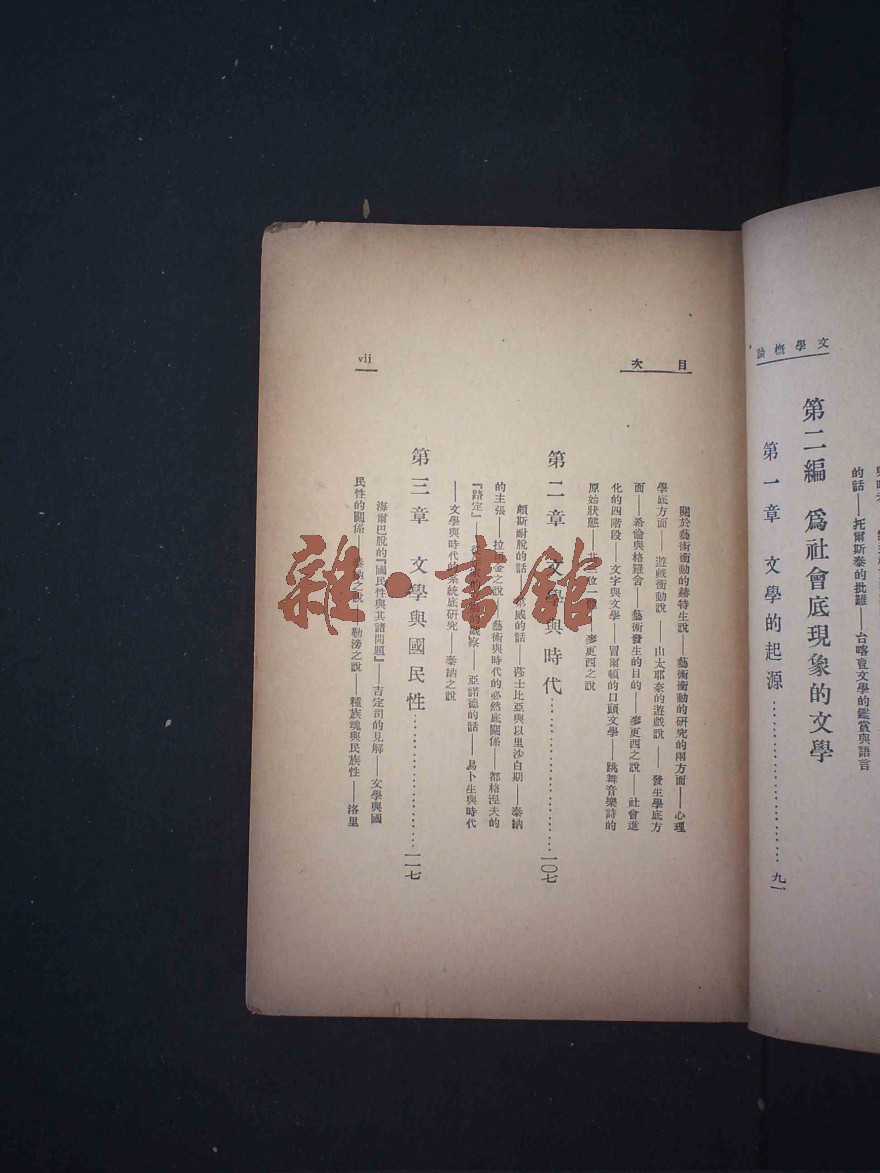 文學概論
的話——托爾斯泰的批難——台喀竟文學的鑑賞與語言
第二編 爲社會底現象的文學
第一章 文學的起源 九一
目次
關於藝術衝動的赫特生說——藝術衝動的研究的兩方面——心理
學底方面——遊戲衝動說——山太耶奈的遊戲說——發生學底方
面——希倫與格羅舍——藝術發生的目的——麥更西之說——社會進
化的四階段——文字與文學——冒爾頓的口頭文學——跳舞音樂詩的
原始狀態——麥更西之說
第二章 文學與時代 一〇七
顛斯耐脫的話 威的話 莎士比亞與以里沙白期——泰納
的主張——之說——藝術與時代的必然底關係——都格涅夫的
『踏定』 觀察——亞諾德的話——易卜生與時代
——文學與時代的系統底研究——泰納之說
第三章 文學與國民性 一一七
海爾巴脫的『國民性與其諸問題』——吉定司的見解——文學與國
民性的關係——泰納之說——勒滂之說——種族魂與民族性——洛里
vii
雜·書館